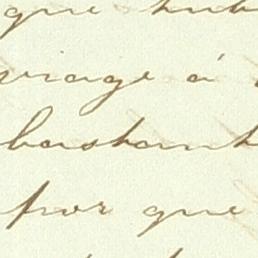 que hub
viage á
bastant
por que